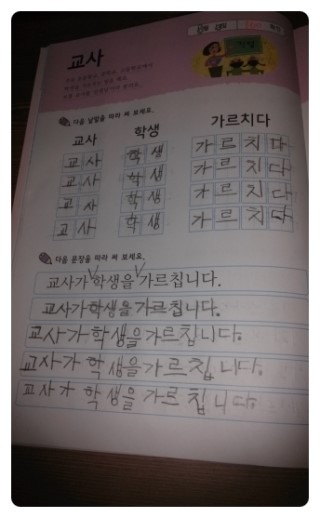 교사
다음 낱말을 따라 써 보세요.
교사 학생 가르치다
교사 학생 가르치다
교사 학생 가르치다
교사 학생 가르치다
교사 학생 가르치다
다음 문장을 따라 써 보세요.
교사가∨학생을∨가르칩니다.
교사가학생을가르칩니다.
교사가학생을가르칩니다.
교사가 학생을가르칩니다.
교사가 학생을 가르칩니다.